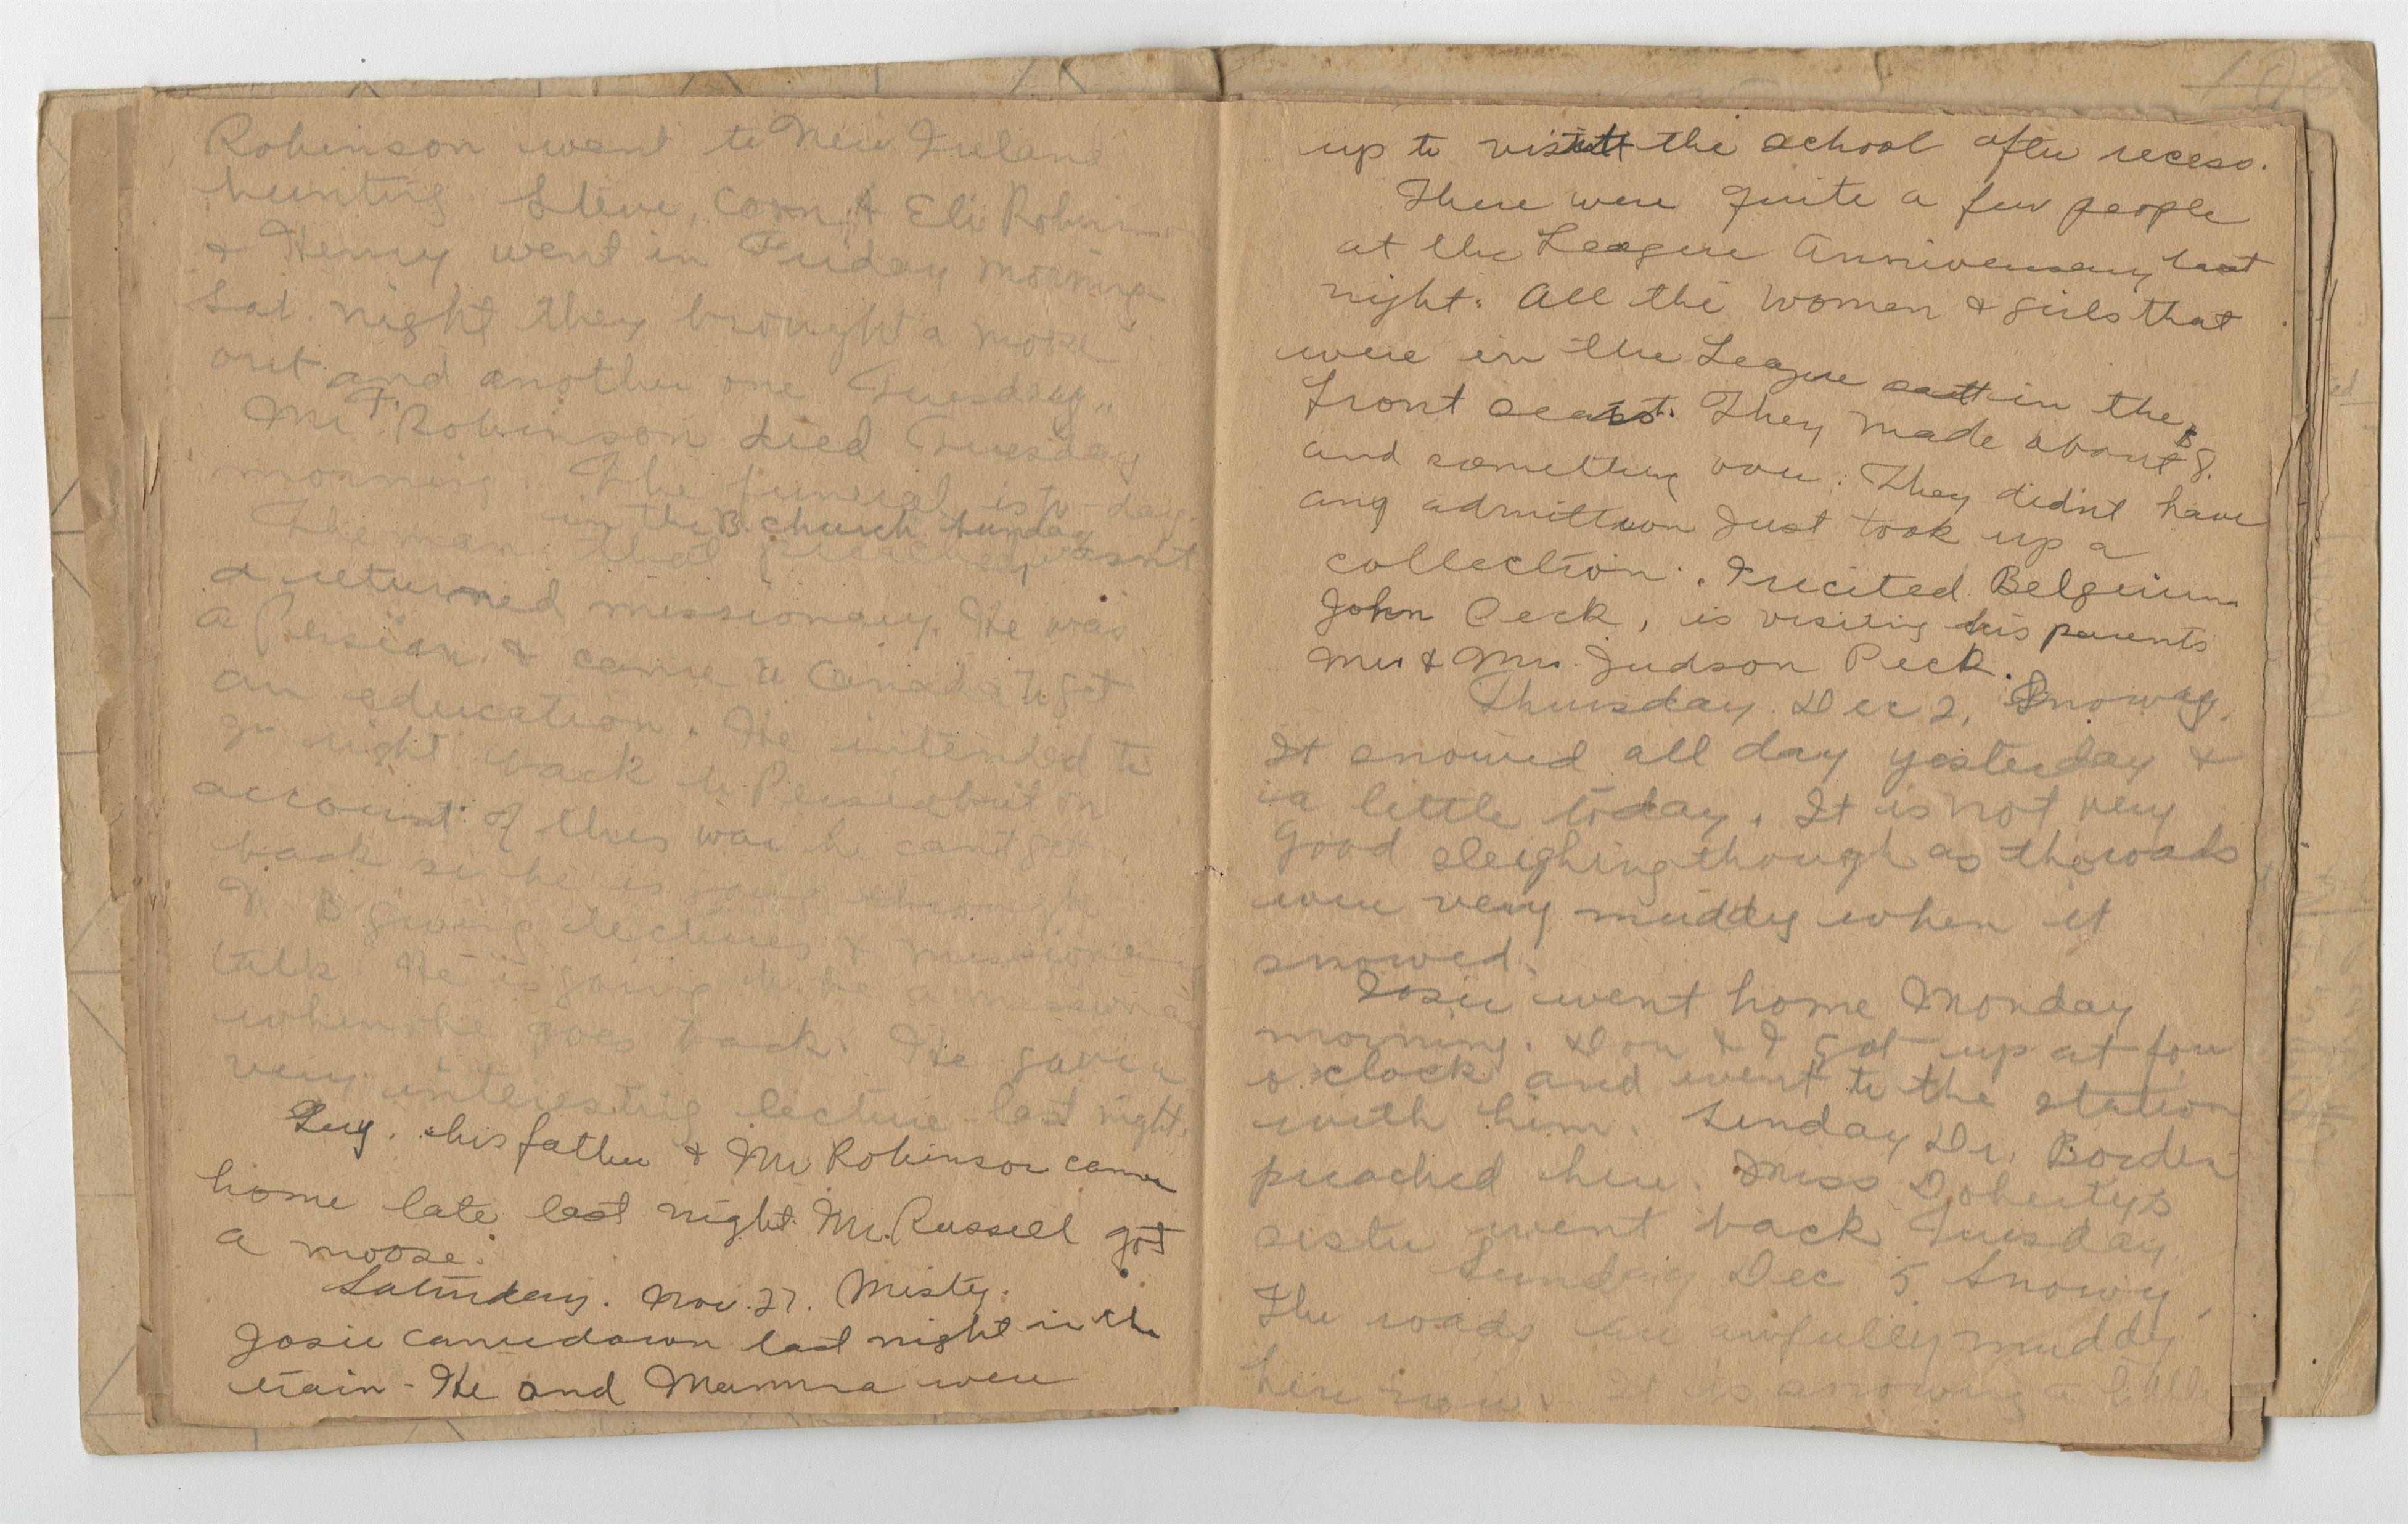 Robinson went to New Ireland
hunting. Steve, Corn & Eli Robinson
& Henry went in Friday morning
Sat. night they brought a moose
out and another one Tuesday"
Mr F. Robinson died Tuesday
morning. The funeral is to-day.
in the B. church Sunday
The man that preached wasnt
a returned missionary. He was
a Persian & came to Canada to get
an education. He intended to
go right back to Persia but on
account of this war he cant get
back so he is going through
N B giving lectures & missionary
talk He is going to be a missiona
when he goes back. He gave a
very interesting lecture last night.
Guy, his father & Mr Robinson came
home late last night Mr. Russell got
a moose.
Saturday. Nov. 27. Misty.
Josie came down last night in the
train - He and Mamma were
up to visit the school after recess.
There were quite a few people
at the League Anniversary last
night. All the women & girls that
were in the League sat in the
front seats. They made about $8.
and something over. They didnt have
any admittion Just took up a
collection. I recited Belgium
John Peck, is visiting his parents
Mr. & Mrs. Judson Peck.
Thursday Dec 2, Snowy.
It snowed all day yesterday &
a little today. It is not very
good sleighing though as the roads
were very muddy when it
snowed.
Josie went home Monday
morning. Don & I got up at four
o clock and went to the station
with him. Sunday Dr. Borden
preached here. Miss Doherty's
sister went back Tuesday.
Sunday Dec 5 Snowy,
The roads are awfully muddy
here now & It is snowing a little